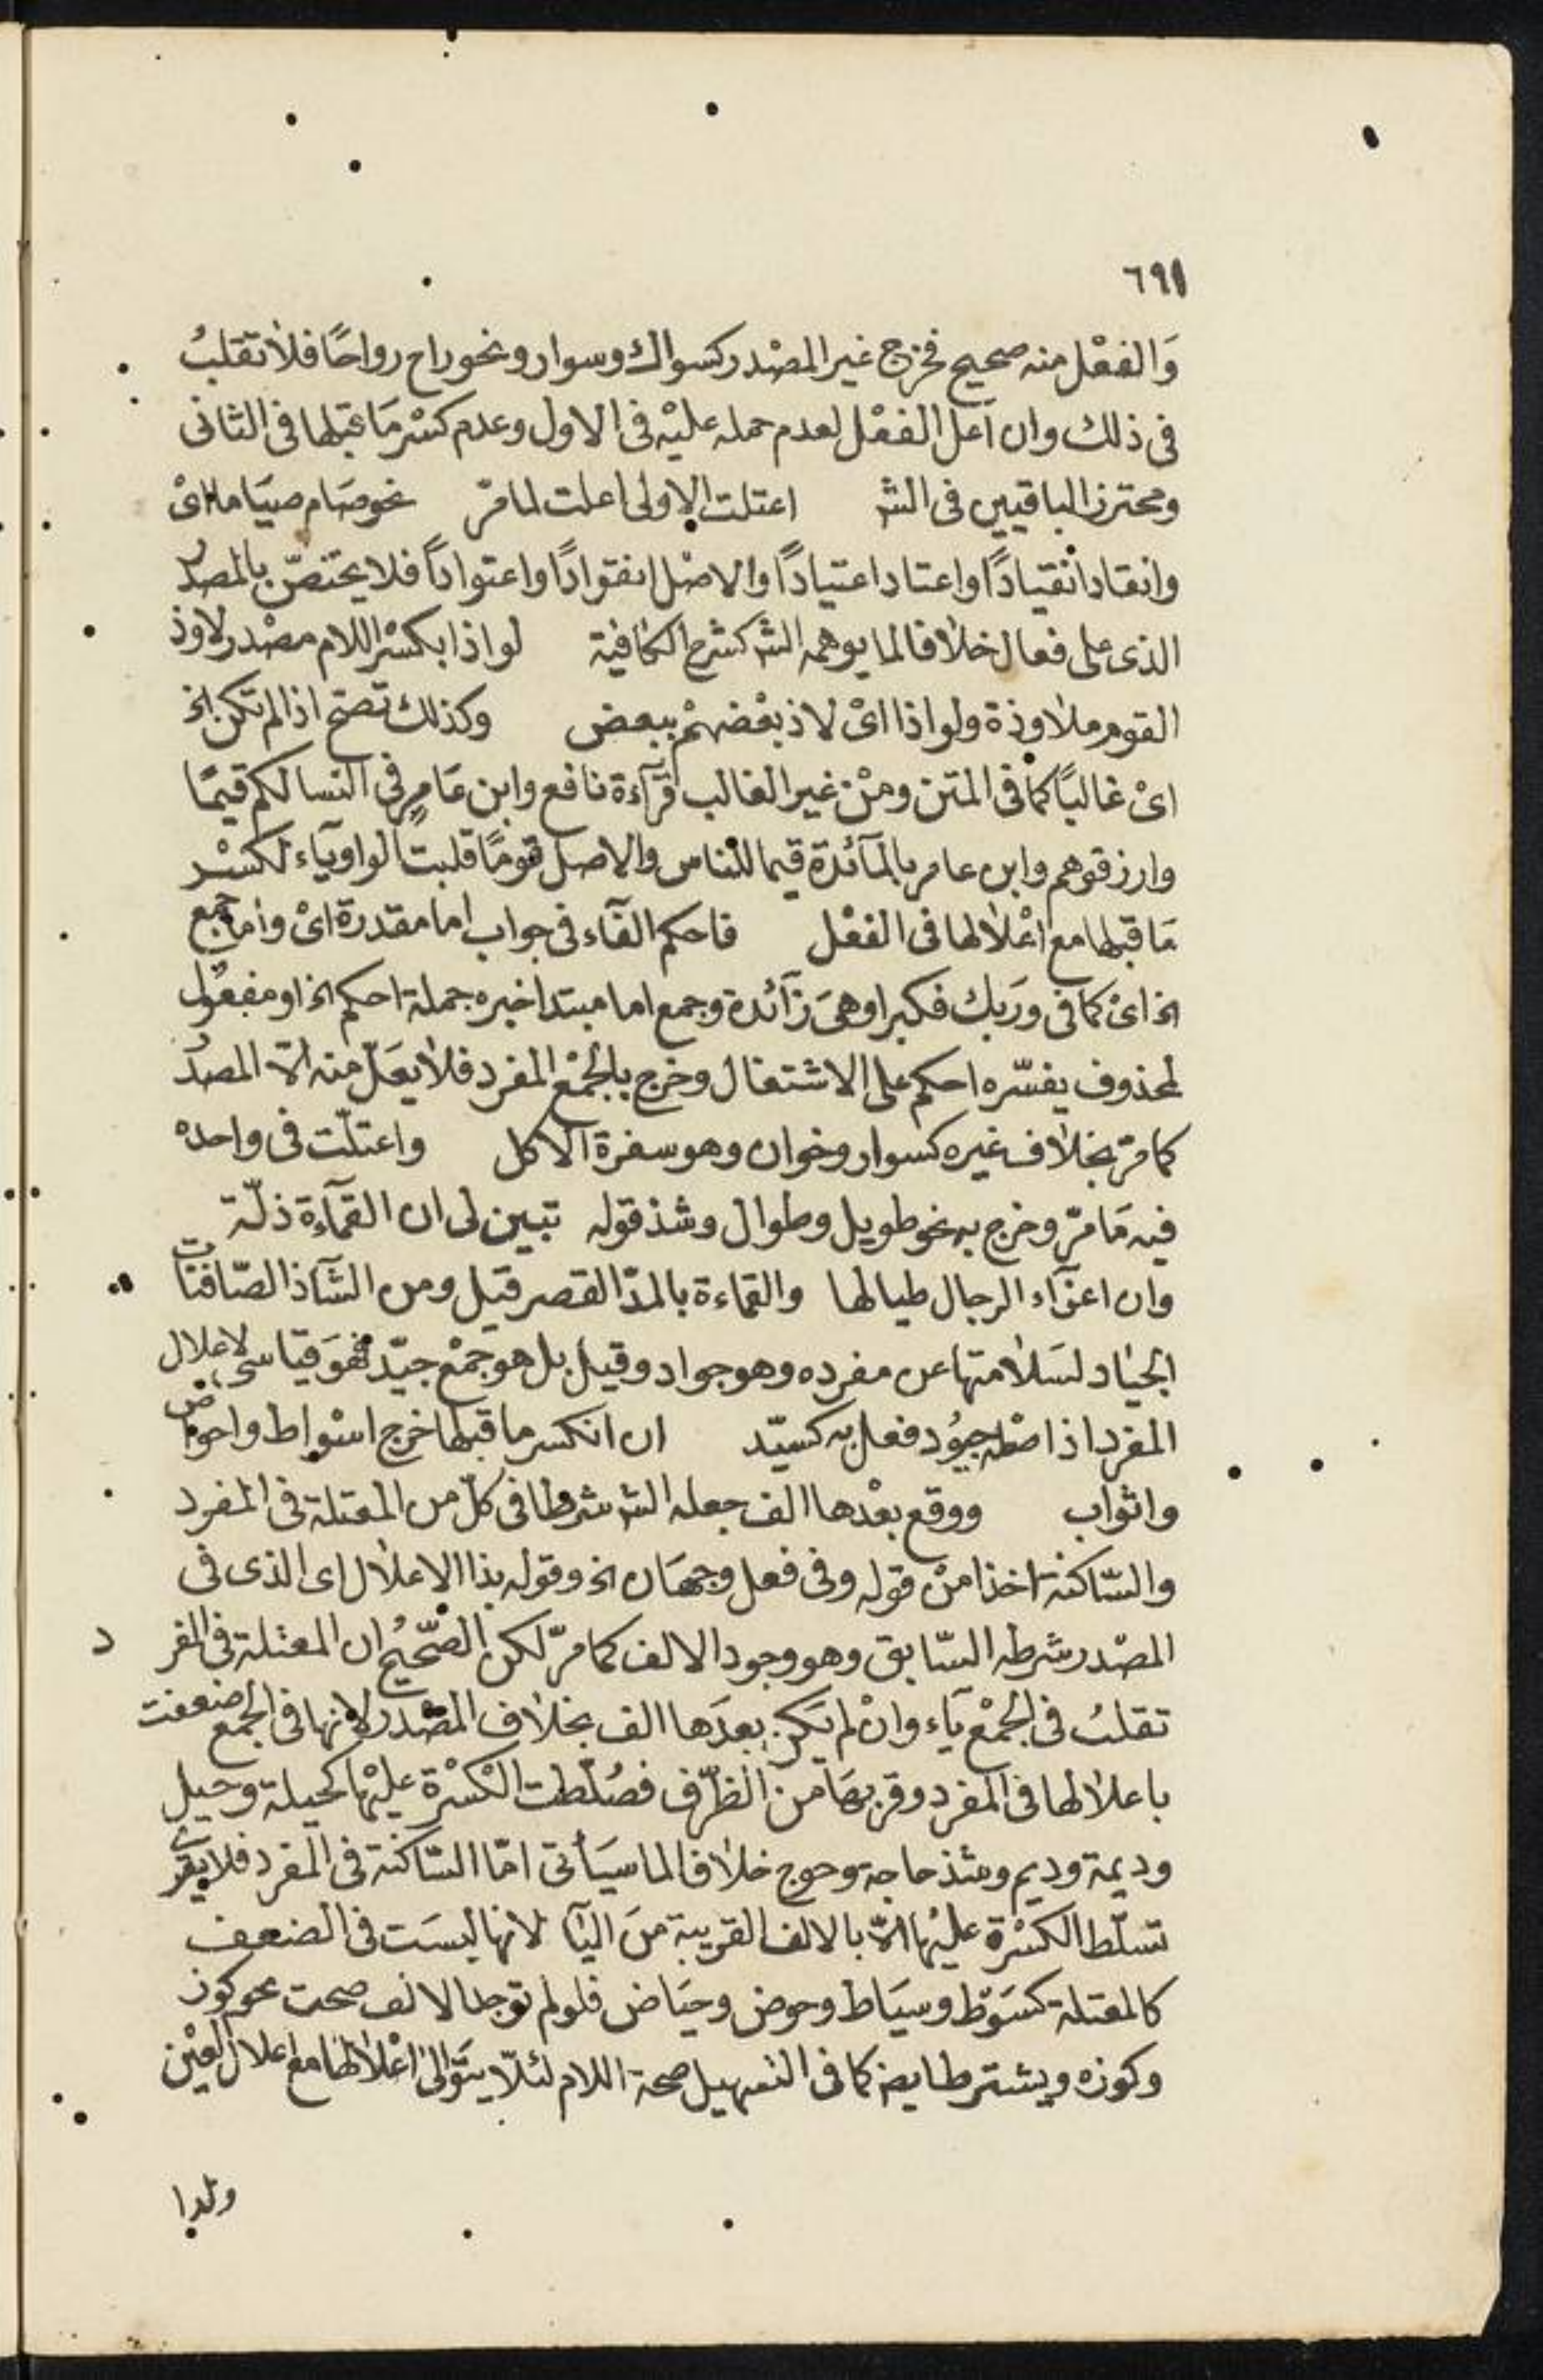 ٦٩١
وَالفعْل منه صحيح فخرج غير المصْدر كسواك وسوار ونحو راح رواحًا فلا تقلبُ
فى ذلك وان أعل الفعْل لعدم حمله عليْه فى الاول وعدم كسْر مَا قبلها فى الثانى
ومحترز الباقيين فى الشر اعتلت الاولى اعلت لما مرّ نحو صَام صيَاما اىْ
وانقاد انقيادًا واعتاد اعتيادًا والاصْل انقوادًا واعتوادًا فلا يختصّ بالمصدر
الذى على فعال خلافا لما يوهمه الشر كشرح الكافية لواذا بكسْر اللام مصْدر لاوذ
القوم ملاوذة ولواذا اىْ لاذ بعْضهمْ ببعض وكذلك تصح اذا لم تكن الخ
اىْ غالبًا كما فى المتن ومنْ غير الغالب قرآءة نافع وابن عَامرٍ فى النسا لكم قيمًا
وارزقوهم وابن عامر بالمآئدة قيما للناس والاصل قومًا قلبت الواو يآء لكسْر
مَا قبلها مع اعْلالها فى الفعْل فاحكم الفآء فى جواب اما مقدرة اىْ وأما جمع
الخ اىْ كما فى ورَبك فكبر او هىَ زآئدة وجمع اما مبتدا خبره جملة احكم الخ او مفعول
لمحذوف يفسّره احكم على الاشتغال وخرج بالجمْع المفرد فلا يعَلّ منه الّا المصدر
كما مرّ بخلاف غيره كسوار وخوان وهو سفرة الاكل واعتلّت فى واحده
فيه مَا مرّ وخرج به نحو طويل وطوال وشذ قوله تبين لى ان القمآءة ذلّة
وان اعزّآء الرجال طيالها والقماءة بالمدّ القصر قيل ومن الشآذ الصّافنات
الجيَاد لسَلامتها عن مفرده وهو جواد وقيل بل هو جمْع جيّد فهوَ قياسى لاعلال
المفرد اذ اصْله جيوُد فعل به كسيّد ان انكسر ما قبلها خرج اسْواط واحواض
واثواب ووقع بعْدها الف جعله الشر شرطا فى كلّ من المعتلة فى المفرد
والسّاكنة اخذا منْ قوله وفى فعل وجهَان الخ وقوله بذا الاعلال اى الذى فى
المصْدر شرطه السّابق وهو وجود الالف كما مرّ لكن الصّحيحُ ان المعتلة فى المفرد
تقلبُ فى الجمْع يَآء وانْ لم يَكن بعدَها الف بخلاف المصْدر لانها فى الجمع ضعفت
باعلالها فى المفرد وقربهَا من الطرّف فصُلّطت الكسْرة عليْها كحيلة وحيل
وديمة وديم وشذ حاجة وحوج خلافا لما سيَأتى امّا السّاكنة فى المفرد فلا يقوى
تسلّط الكسْرة عليْها الّا بالالف القريبة منَ اليآ لانها ليسَت فى الضعف
كالمعتلة كسَوْط وسيَاط وحوض وحيَاض فلو لم توجد الالف صحت نحو كوز
وكوزه ويشترط ايضا كما فى التسهيل صحة اللام لئلّا يتوَالى اعْلالها مع اعلال العيْن
ولذا